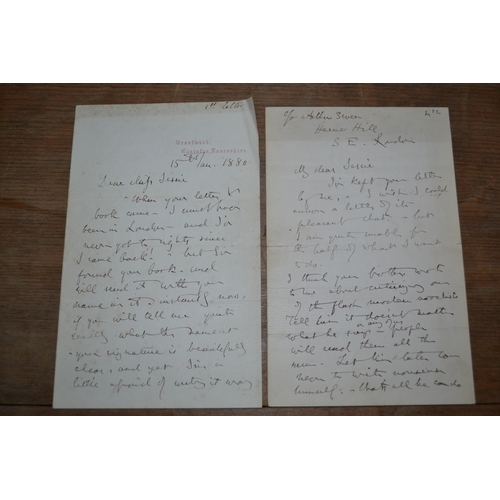 1st letter
Brantwood,
Coniston, Lancashire.
15th Jan. 1880
Dear Miss Jessie
When your letter &
book came - I must have
been in London - and I've
never got to rights since
I came back! - but I've
found your book - and
will send it with your
name in it - instantly now,
if you will tell me quite
exactly what the name is
- your signature is beautifully
clear, and yet I'm a
little afraid of writing it wrong
c/o Arthur Severn
Herne Hill
S. E. London
My dear Jessie
I've kept your letter
by me, - I wish I could
answer a letter & its
pleasant chat. - but
I am quite unable for
the half of what I want
to do.
I think your brother wrote
to me about
of the
Tell him it doesn't matter
what he says - or any
people
will read them all the
Let him
never to write nonsense
himself, - that's all he can do